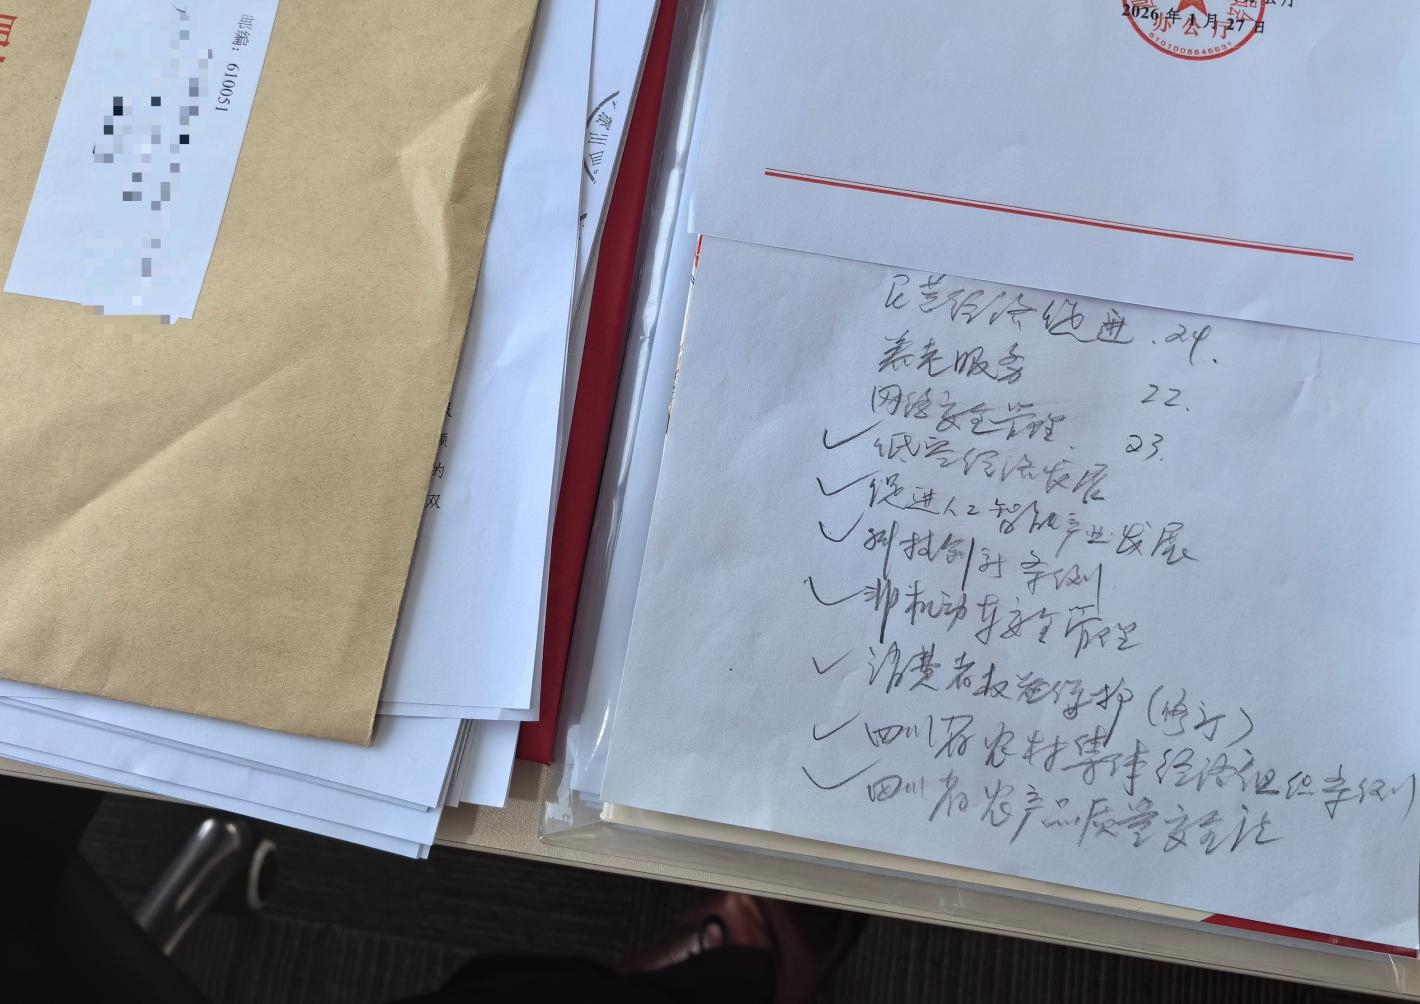 邮编：610051
公厅
2026年1月27日
办公厅
5101008646531
四川
的
双
民营经济促进.24.
养老服务 22.
网络安全管理. 23.
✓低空经济发展
✓促进人工智能产业发展
✓科技创新条例
✓非机动车安全管理
✓消费者权益保护(修订)
✓四川省农村集体经济组织条例
✓四川省农产品质量安全法